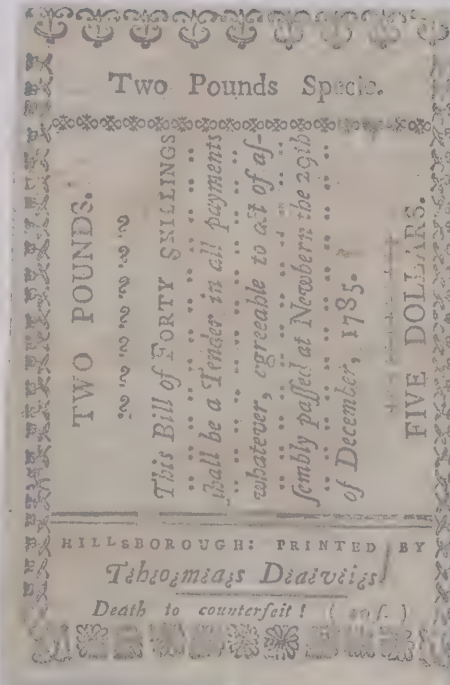 Two Pounds Specie.
TWO POUNDS.
This Bill of FORTY SHILLINGS
shall be a Tender in all payments
whatever, agreeable to act of as-
sembly passed at Newbern the 29th
of December, 1785.
FIVE DOLLARS.
HILLSBOROUGH: PRINTED BY
Thomas Davis
Death to counterfeit! (40s.)